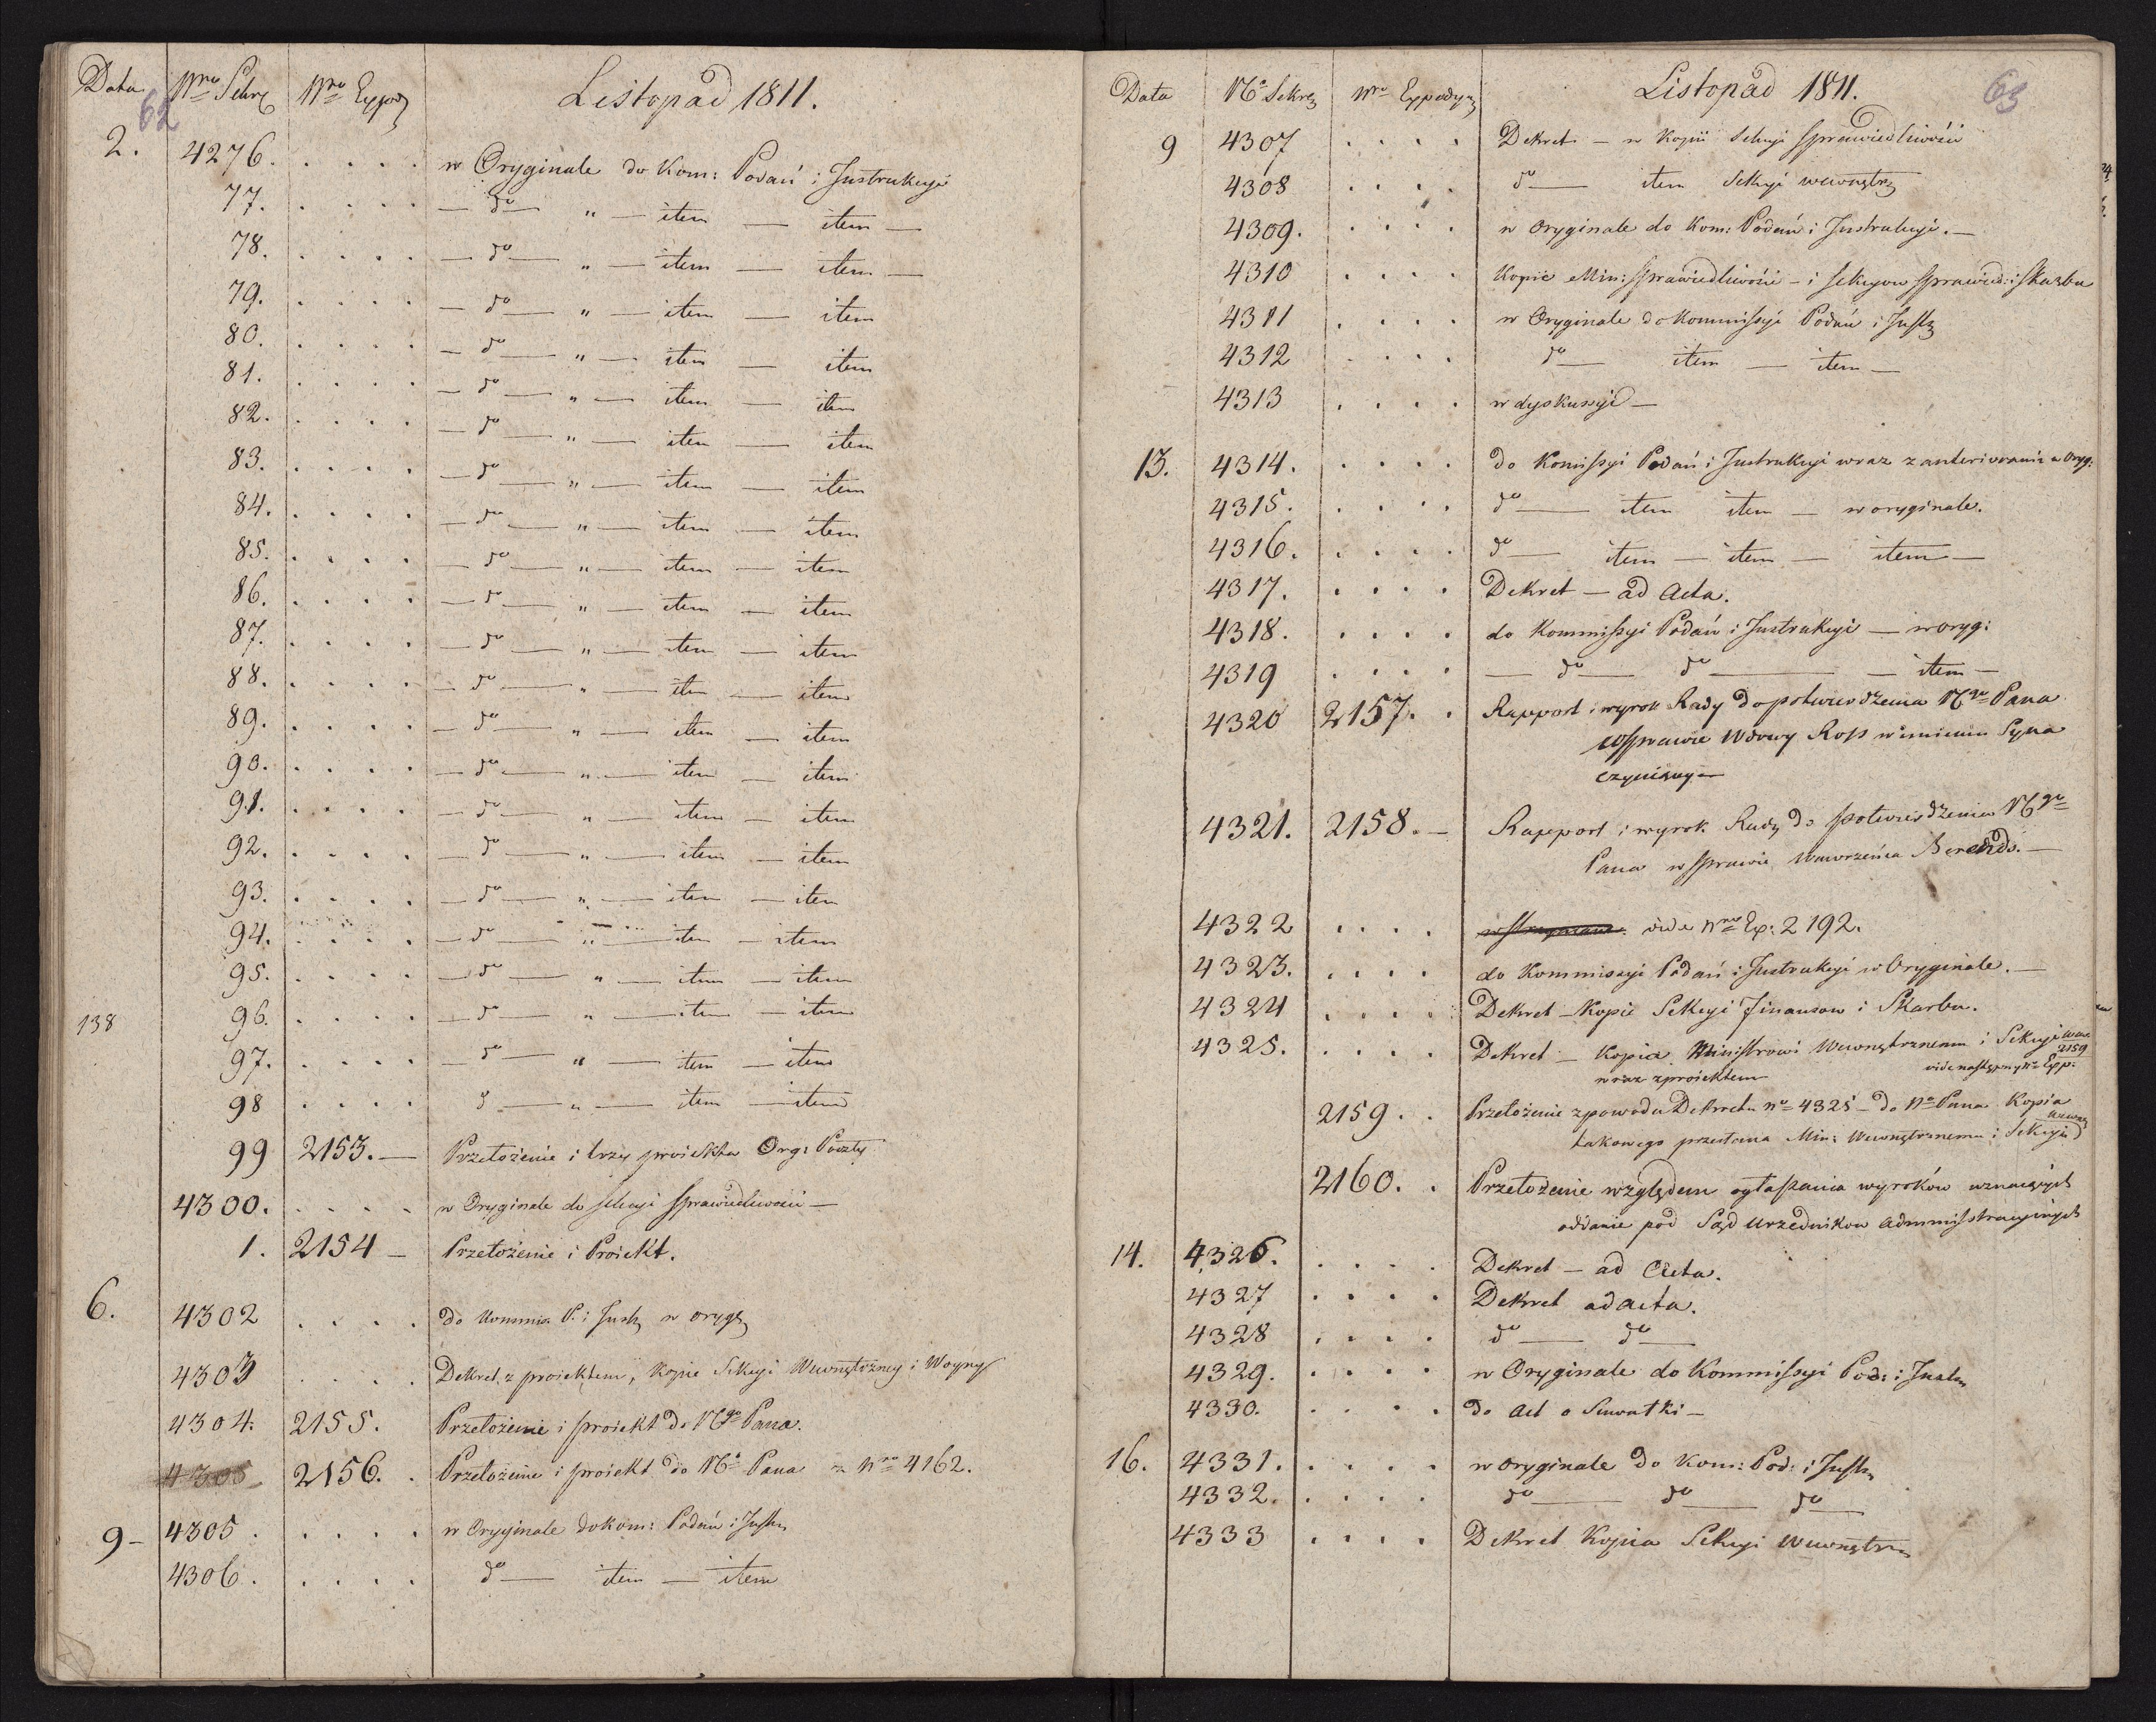 Data Nro Sekr Nro Exped Listopad 1811.
62
2. 4276. . . . . w Oryginale do Kom: Podań i Instrukcyi
77. . . . . — do — " — item — item —
78. . . . . — do — " — item — item —
79. . . . . — do — " — item — item
80. . . . . — do — " — item — item
81. . . . . — do — " — item — item
82. . . . . — do — " — item — item
83. . . . . — do — " — item — item
84. . . . . — do — " — item — item
85. . . . . — do — " — item — item
86. . . . . — do — " — item — item
87. . . . . — do — " — item — item
88. . . . . — do — " — item — item
89. . . . . — do — " — item — item
90. . . . . — do — " — item — item
91. . . . . — do — " — item — item
92. . . . . — do — " — item — item
93. . . . . — do — " — item — item
94. . . . . — do — " — item — item
95. . . . . — do — " — item — item
138 96. . . . . — do — " — item — item
97. . . . . — do — " — item — item
98 . . . . do — " — item — item
99 2153. — Przełożenie i trzy proiekta Org: Poczty
4300. . . . . w Oryginale do Sekcyi Sprawiedliwości —
1. 2154 — Przełożenie i Proiekt.
6. 4302 . . . . do Kommis. P. i Instr w oryg
4303 . . . . Dekret z proiektem, Kopie Sekcyi Wewnętrzney i Woyny
4304. 2155. Przełożenie i proiekt do Ngo Pana.
4305 2156. . Przełożenie i proiekt do No Pana z Nro 4162.
9 — 4305 . . . . . w Oryginale do Kom: Podań i Instr
4306. . . . . do — item — item
Data No Sekre Nro Expedyc Listopad 1811. 63
9 4307 . . . . Dekret — w Kopii Sekcyi Sprawiedliwości
4308 . . . . do — item Sekcyi wewnętrz
4309. . . . . w Oryginale do Kom: Podań i Instrukcyi. —
4310 . . . . Kopie Min: Sprawiedliwości — i Sekcyom Sprawied: i Skarbu
4311 . . . . w Oryginale do Kommissyi Podań i Instr
4312 . . . . do — item — item —
4313 . . . . w dyskussyi —
13. 4314. . . . . do Komissyi Podań i Instrukcyi wraz z anterioramie w Oryg:
4315. . . . . do — item item — w oryginale.
4316. . . . . do — item — item — item —
4317. . . . . Dekret — ad Acta.
4318. . . . . do Kommissyi Podań i Instrukcyi — w oryg:
4319 . . . . — do — do — — item —
4320 2157. . Rapport i wyrok Rady do potwierdzenia Ngo Pana
w Sprawie Wdowy Ross w imieniu Syna
czyniący —
4321. 2158. — Rapport i wyrok Rady do potwierdzenia Ngo
Pana w Sprawie Wawrzeńca Berends. —
4322 . . . . wstrzymane. vide Nro Ex: 2192.
4323. . . . . do Kommissyi Podań i Instrukcyi w Oryginale. —
4324 . . . . Dekret — Kopie Sekcyi Finansow i Skarbu.
4325. . . . . Dekret — Kopia Ministrowi Wewnętrznemu i Sekcyi wew
wraz z proiektem vide następny Nro Exp: 2159
2159. . Przełożenie z powodu Dekretu No 4325 — do No Pana Kopia
takowego przesłana Min: Wewnętrznemu i Sekcyi wewnę
2160. . Przełożenie względem ogłaszania wyroków uznaiących
oddanie pod Sąd Urzednikow Administracyinych
14. 4326. . . . . Dekret — ad Acta.
4327 . . . . Dekret ad acta.
4328 . . . . do — do —
4329. . . . . w Oryginale do Kommissyi Pod: i Instr
4330. . . . . do Act o —
16. 4331. . . . . w oryginale do Kom: Pod: i Instr
4332. . . . . do — do — do —
4333 . . . . Dekret Kopia Sekcyi Wewnętrzn